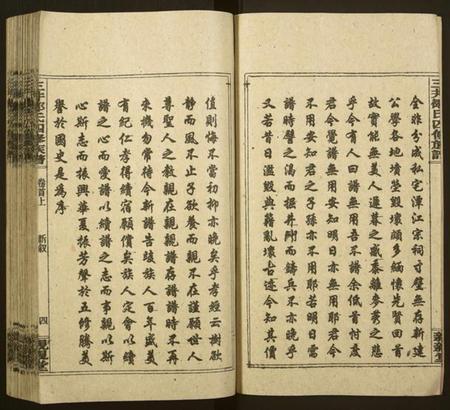 全非分成私宅潭江宗祠寸壁無存新建
公學各地墳塋毀壞頗多緬懷先賢回首
故實能無美人遲暮之感黍離麥秀之悲
乎今有人曰譜無用吾不譜余低首忖度
君今覺譜無用安知明日亦無用耶君今
不用安知君之子孫亦不用耶若明日需
譜時譬之渴而掘井鬥而鑄兵不亦晚乎
又若昔日濫毀典籍亂壞古迹今知其價
值則悔不當初抑亦晚矣乎孝經云樹欲
靜而風不止子欲養而親不在謹願世人
尊聖人之教親在親親譜存譜譜時不再
來機勿常待今新譜告竣族人百年盛美
有紀仁孝得續宿願償矣族人定會以續
譜之心而愛譜以續譜之志而事親以斯
心斯志而振興華夏振芳譽於五修騰美
譽於國史是為序
氏四修族譜 卷首上 新敘 四